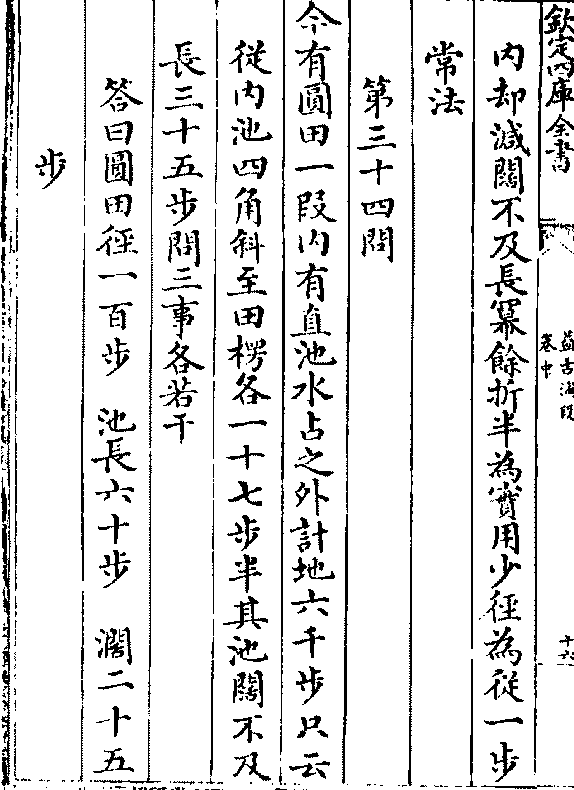 欽定四庫全書
益古演段
卷中
十六
内却減闊不及長冪餘折半為實用少徑為從一步
常法
第三十四問
今有圓田一段内有直池水占之外計地六千步只云
從内池四角斜至田楞各一十七步半其池闊不及
長三十五步問三事各若干
答曰圓田徑一百步　池長六十步　濶二十五
步